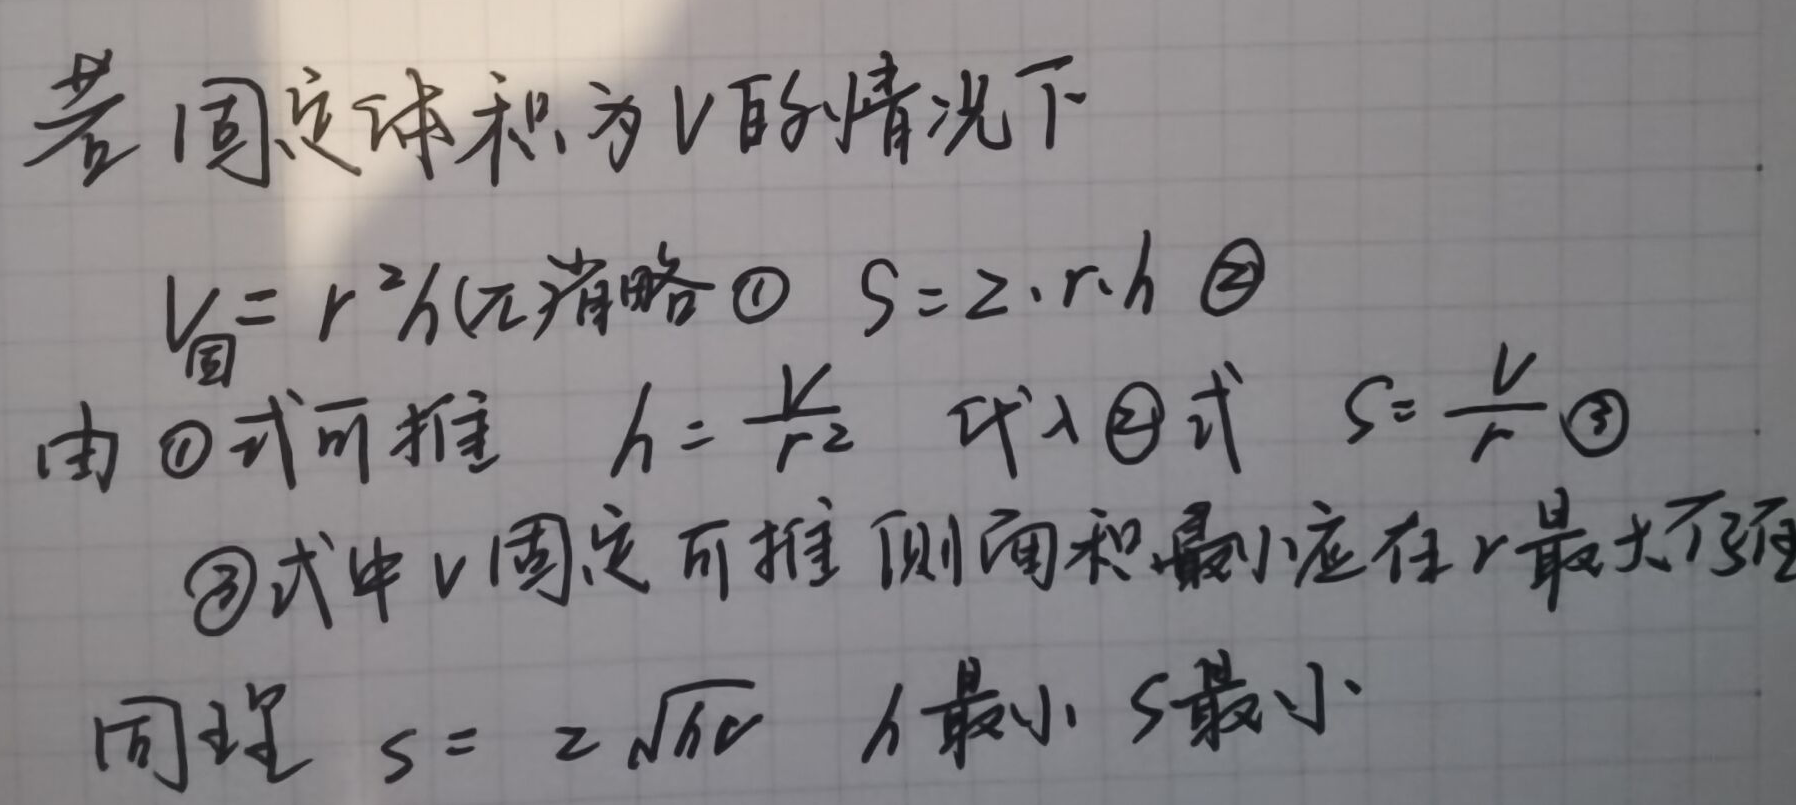 若固定体积为V的情况下
V固=r²h(π)省略① S=2·r·h ②
由①式可推 h=V/r² 代入②式 S=V/r ③
③式中V固定可推侧面积最小应在r最大
同理 S=2√hV h最小 S最小